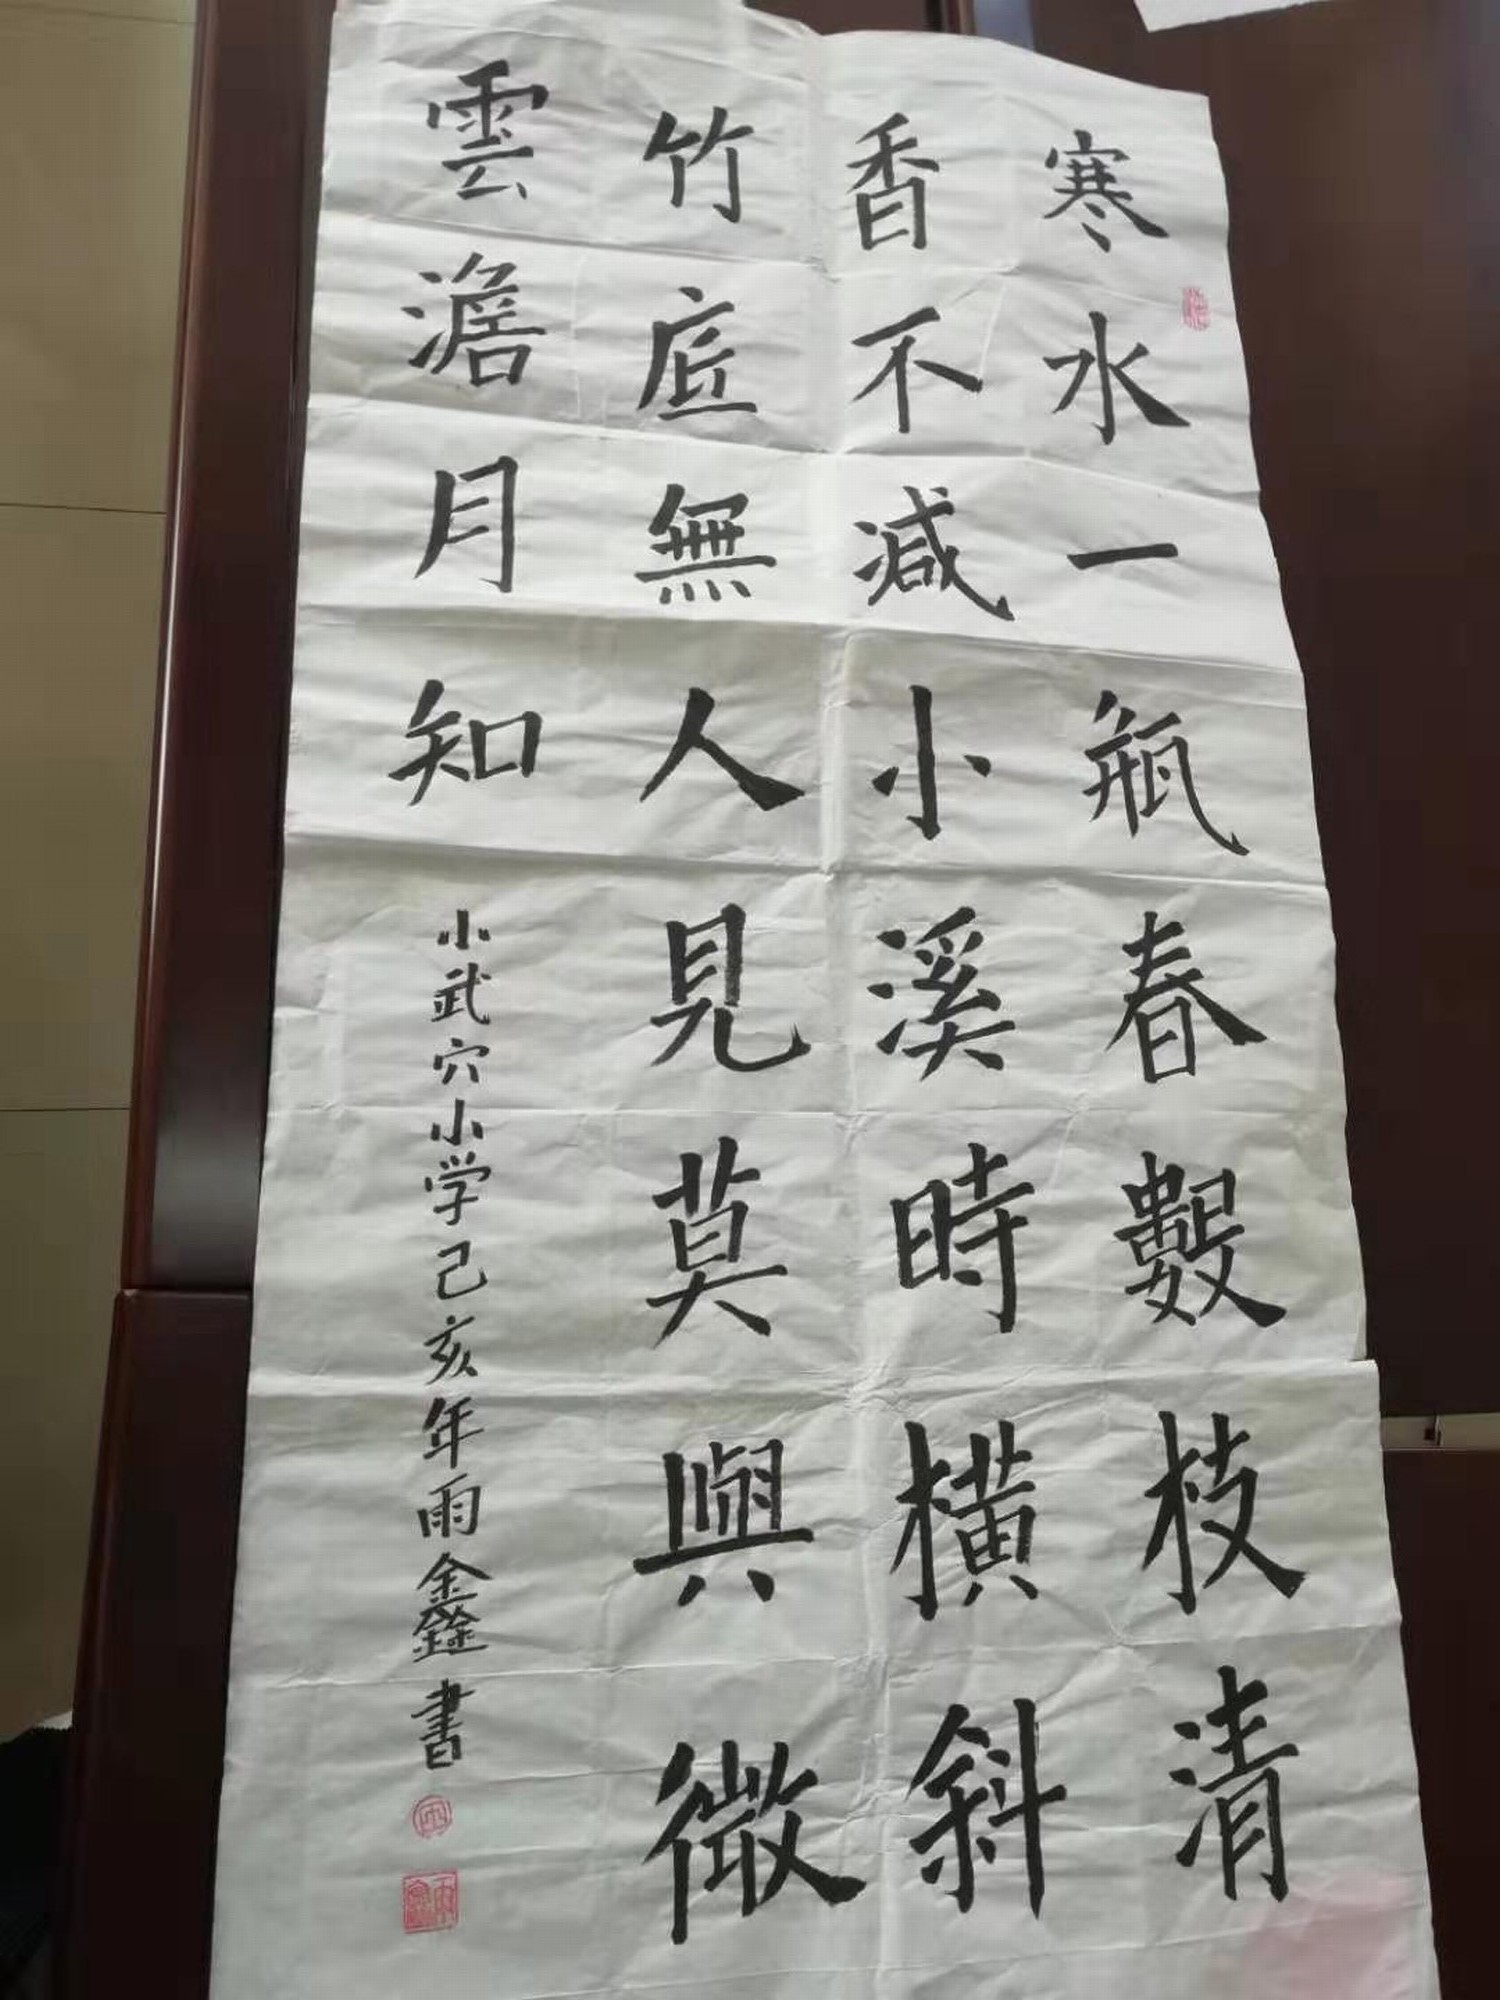 寒水一瓶春數枝清
香不減小溪時橫斜
竹底無人見莫與微
雲澹月知
小武穴小学己亥年雨鑫書